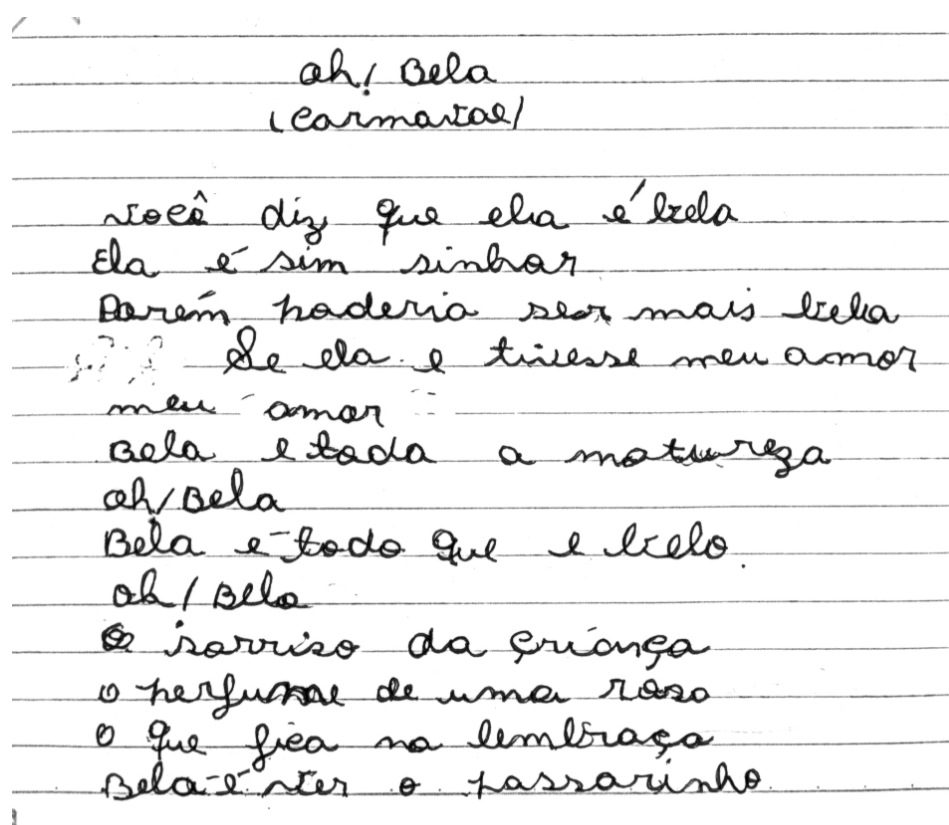 Oh! Bela
(Carmaval)
você diz que ela é bela
Ela é sim sinhor
Porém poderia ser mais bela
Se ela e tivesse meu amor
meu amor
Bela e toda a natureza
Oh! Bela
Bela e todo que e belo
Oh! Bela
O sorriso da criança
o perfume de uma rosa
O que fica na lembraça
Bela é ver o passarinho